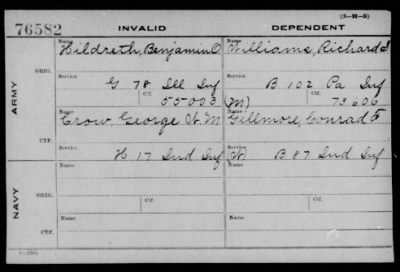 (3-H-5)
76582 INVALID DEPENDENT
Name Name
Hildreth, Benjamin O. Williams, Richard S
ORIG.
Service Service
G 78 Ill Inf B 102 Pa Inf
Ctf. Ctf.
55003 (M) 73606
ARMY
Name Name
Crow, George W. M Gillmore, Conrad F
CTF.
Service Service
H 17 Ind Inf (W) B 87 Ind Inf
Name Name
ORIG.
Service Service
Ctf. Ctf.
NAVY
Name Name
CTF.